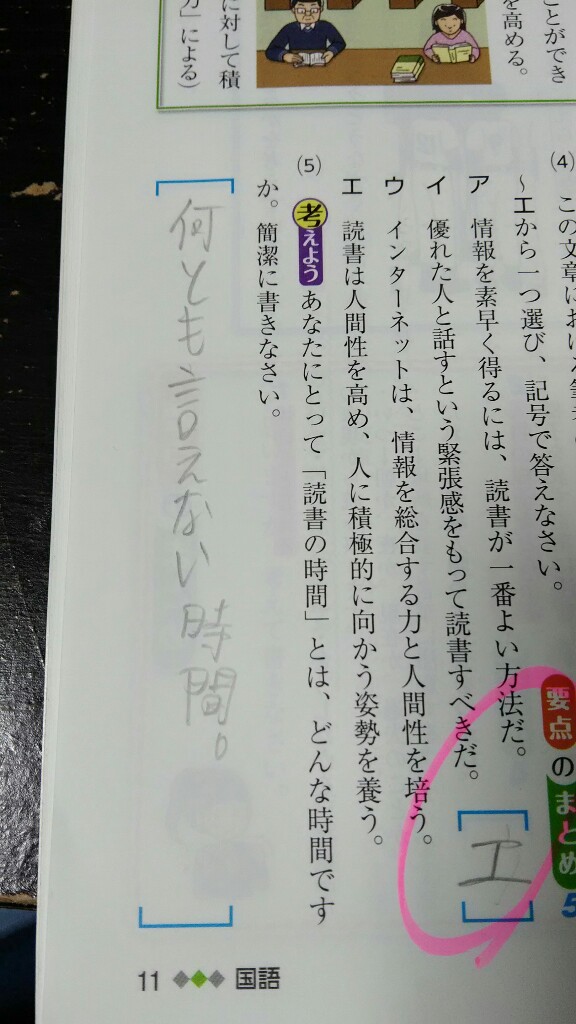 ことができ
を高める。
に対して積
力」による)
(4)
この文章において筆者の
～エから一つ選び、記号で答えなさい。
ア 情報を素早く得るには、読書が一番よい方法だ。
イ 優れた人と話すという緊張感をもって読書すべきだ。
ウ インターネットは、情報を総合する力と人間性を培う。
エ 読書は人間性を高め、人に積極的に向かう姿勢を養う。
要点のまとめ 5
エ
(5) 考えよう あなたにとって「読書の時間」とは、どんな時間です
か。簡潔に書きなさい。
何とも言えない時間。
11 国語